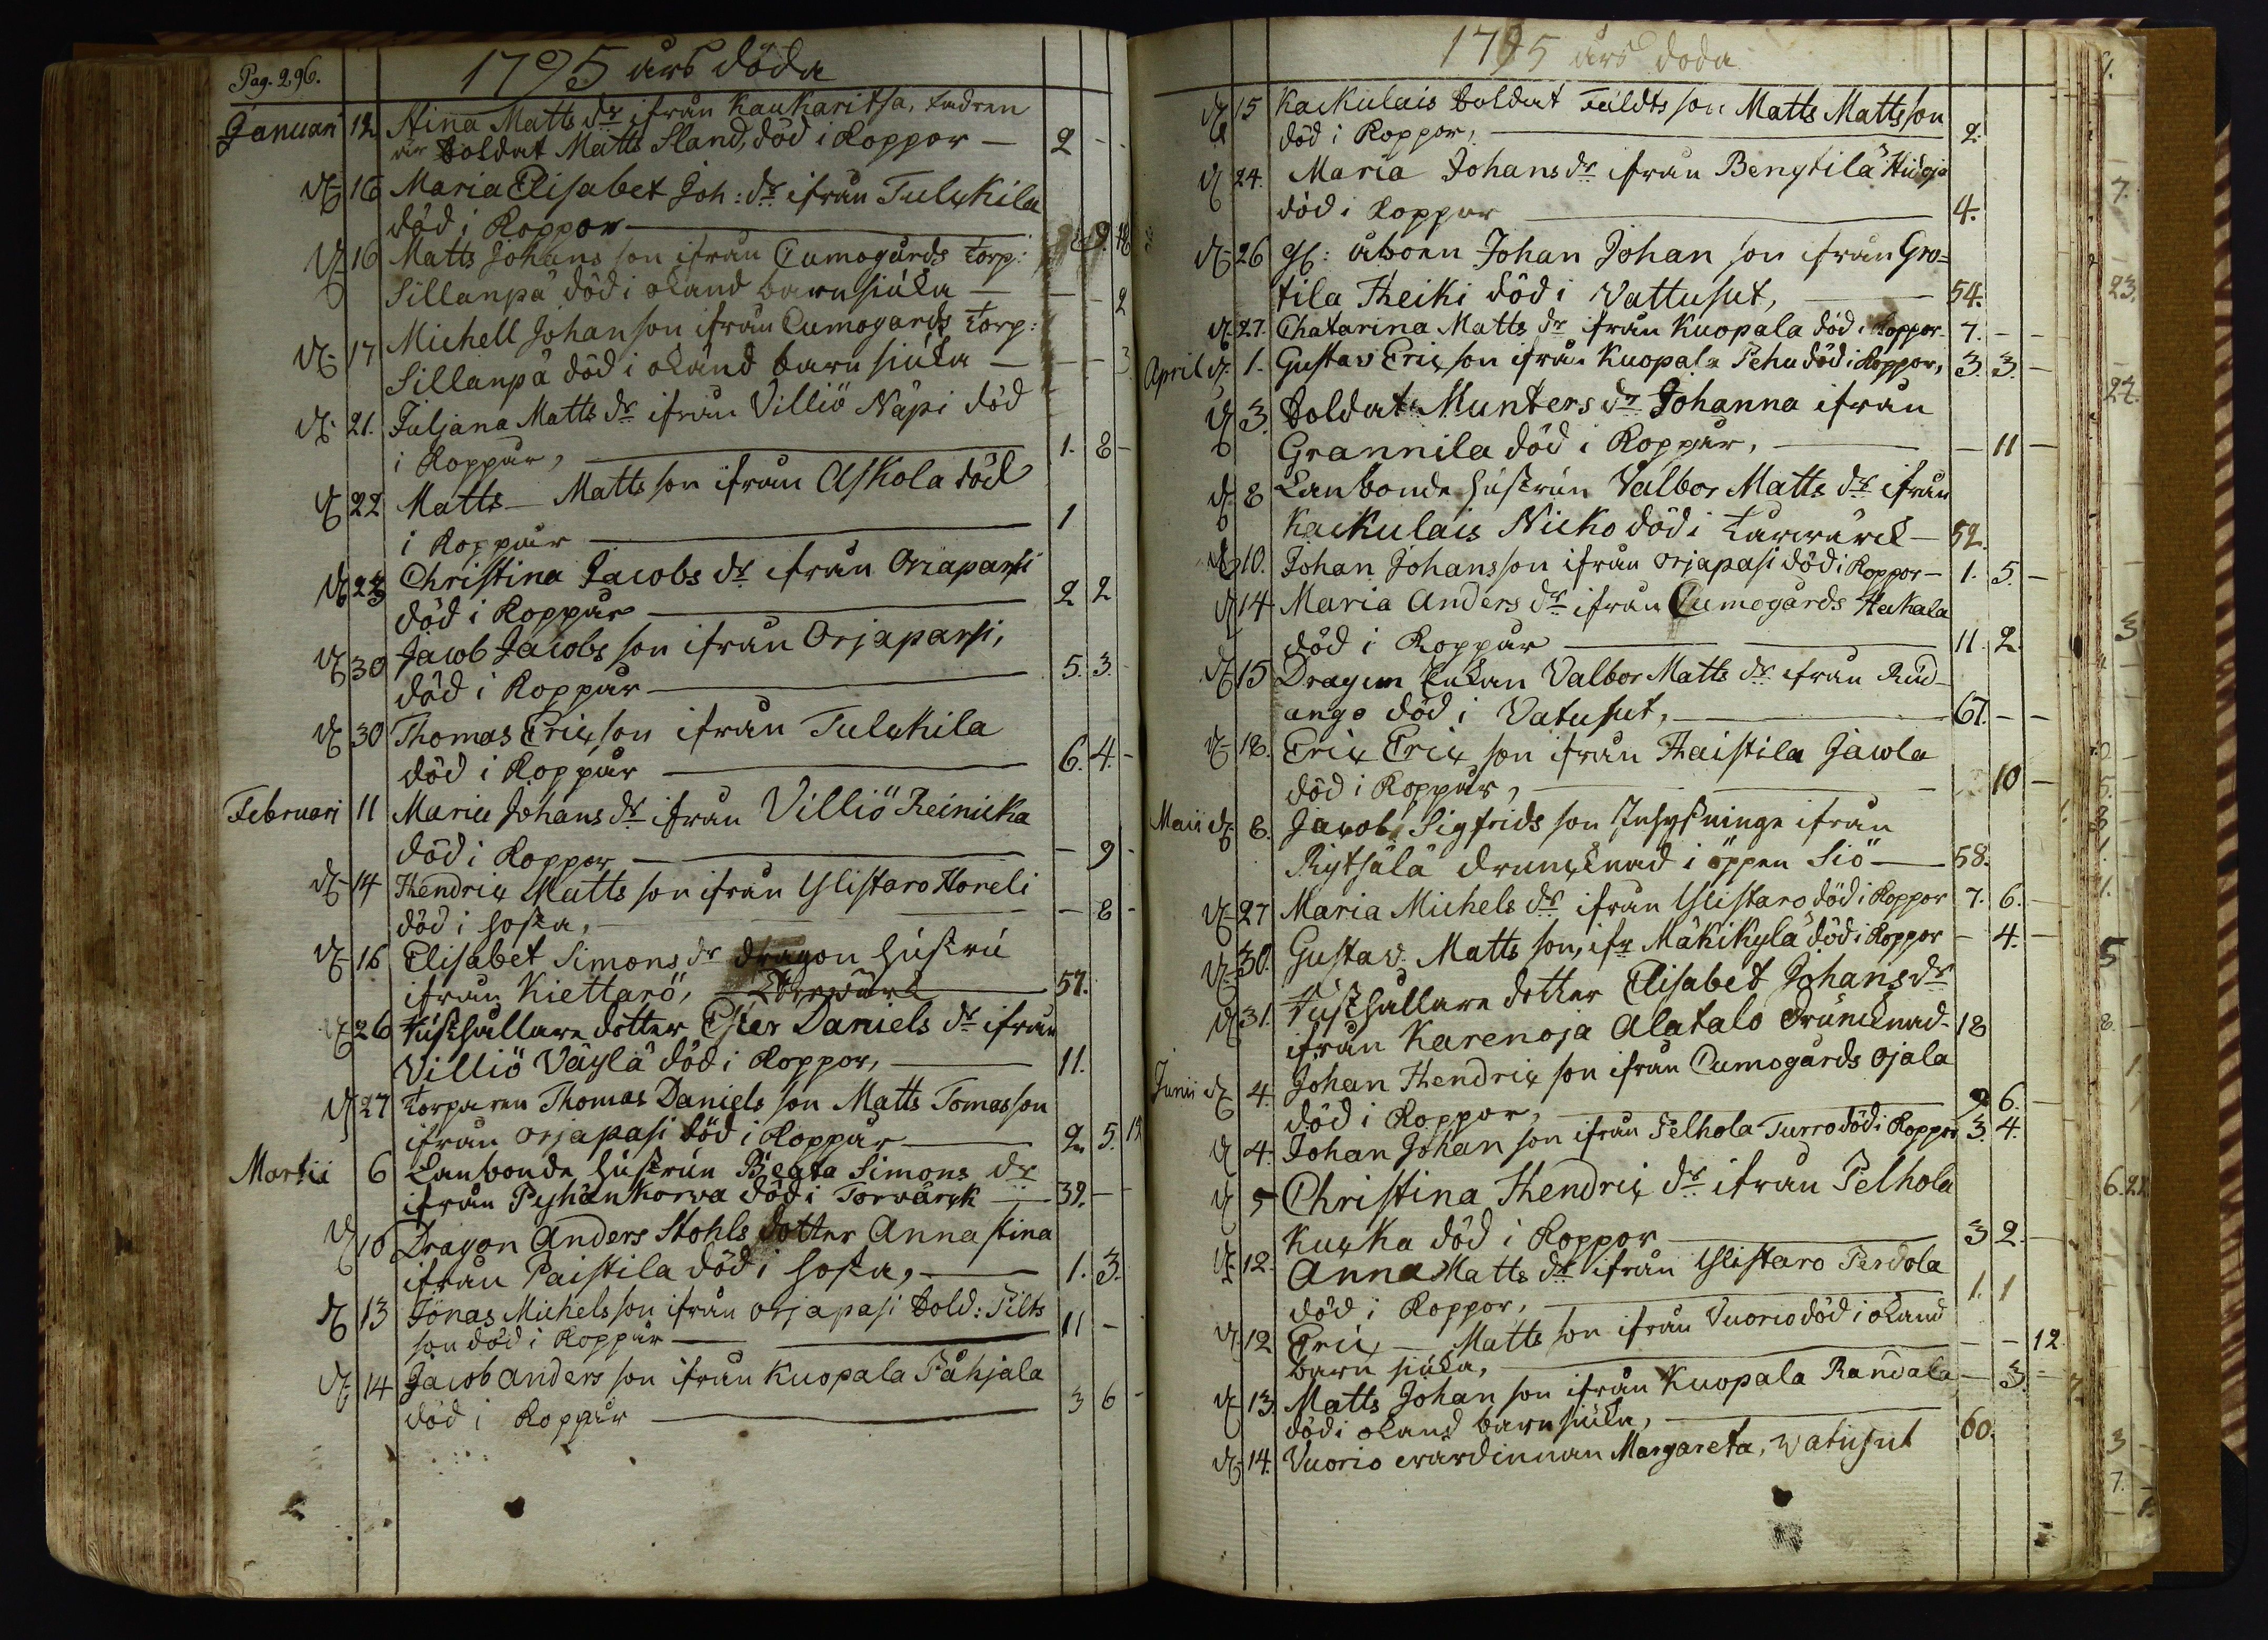 Pag. 296.
1795 års döda
Januari 12 Stina Matts dr ifrån Kaukaritsa, fadren
är Soldat Matts Sland, död i Koppor — 2 - -
d 16 Maria Elisabet Joh: dr ifrån Tulckila
död i Koppor
d 16 Matts Johans son ifrån Cumogårds torp:
Sillanpä död i okänd barnsjuka — - - 2
d 17 Michell Johanson ifrån Cumogards torp:
Sillanpä död i okänd barnsjuka — - - 3
d 21. Juljana Matts dr ifrån Villiö Näpi död
i Koppur, 1. 8 -
d 22 Matts — Matts son ifrån Askola död
i Koppur 1
d 23 Christina Jacobs dr ifrån Orjapansi
död i Koppur 2 2
d 30 Jacob Jacobs son ifrån Orjapansi,
död i Koppur 5. 3.
d 30 Thomas Ericson ifrån Tulckila
död i Koppur 6. 4. -
Februari 11 Maria Johans dr ifrån Villiö Reinicka
död i Koppor - 9 -
d 14 Hendric Matts son ifrån Ylistaro Horeli
död i hosta, - 8 -
d 16 Elisabet Simons dr dragon hustru
ifrån Kiettarö, 57.
d 26 Rusthållare dotter Ester Daniels dr ifrån
Villiö Väylä död i Koppor, 11.
d 27 torparen Thomas Daniels son Matts Tomasson
ifrån Orjapasi död i Koppur 2. 5. 14
Martii 6 Lanbonde hustrun Beata Simons dr
ifrån Pyhänkorva död i Torvärck — 39. - -
d 10 Dragon Anders Stohls dotter Anna stina
ifrån Paistila död i hosta, 1. 3.
d 13 Jonas Michelsson ifrån Orjapasi Sold: Filts
son död i Koppur 11 -
d 14 Jacob Anders son ifrån Kuopala Påhjala
död i Koppur 3 6 -
1795 års doda
d 15 Kaukulais Soldat Fäldts son Matts Mattsson
död i Koppor, 2.
d 24. Maria Johans dr ifrån Bengtilä
död i Koppur 4.
d 26 gl: åboen Johan Johan son ifrån Gro-
tila Heiki död i Vattusut, 54.
d 27. Chatarina Matts dr ifrån Kuopala död i Koppor 7. - -
April d 1. Gustav Eric son ifrån Kuopala Pehu död i Koppor, 3. 3. -
d 3. Soldat Munters dr Johanna ifrån
Grannila död i Koppur, - 11 -
d 8 Lanbonde hustrun Valbor Matts dr ifrån
Kaukulais Nicko död i — 52.
d 10. Johan Johansson ifrån Orjapasi död i Koppor — 1. 5. -
d 14 Maria Anders dr ifrån Cumogårds Hakala
död i Koppur 11. 2.
d 15 Dragun Enkan Valbor Matts dr ifrån Rud-
ango död i Vatusut, 67. - -
d 18. Eric Eric son ifrån Haistila Jawla
död i Koppur, 10 -
Maii d 8. Jacob Sigfrids son Inhysninge ifrån
Rytsälä druncknad i öppen Siö — 58.
d 27 Maria Michels dr ifrån Ylistaro död i Koppor 7. 6. -
d 30. Gustav. Matts son, ifr Mäkikylä död i Koppor - 4. -
d 31. Rusthållare dotter Elisabet Johans dr
ifrån Karenoja Alatalo drüncknad- 18
Junii d 4. Johan Hendric son ifrån Cumogårds Ojala
död i Koppor, 2 6. -
d 4. Johan Johan son ifrån Pelhola Turro död i Koppor 3. 4.
d 5 Christina Hendric dr ifrån Pelhola
Kucka död i Koppor 3 2. -
d 12. Anna Matts dr ifrån Ylistaro Perdola
död i Koppor, 1. 1
d 12 Eric — Matts son ifrån Vuorio död i okänd
barn siuka, - - 12.
d 13 Matts Johan son ifrån Kuopala Randala - 3. -
död i okänd barnsiuka,
d 14. Vuorio wardinnan Margareta, Watusut 60.